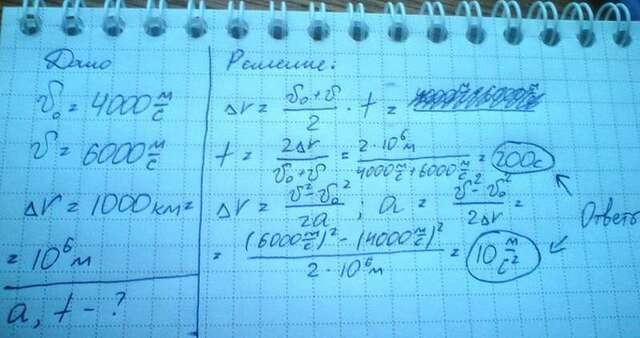 Дано
υ₀ = 4000 м/с
υ = 6000 м/с
Δr = 1000 км =
= 10⁶ м
a, t - ?
Решение:
Δr = (υ₀ + υ)/2 · t =
t = 2Δr/(υ₀ + υ) = 2·10⁶ м/(4000 м/с + 6000 м/с) = 200 с
Δr = (υ² - υ₀²)/2a ; a = (υ² - υ₀²)/2Δr =
= ((6000 м/с)² - (4000 м/с)²)/(2·10⁶ м) = 10 м/с²
Ответы